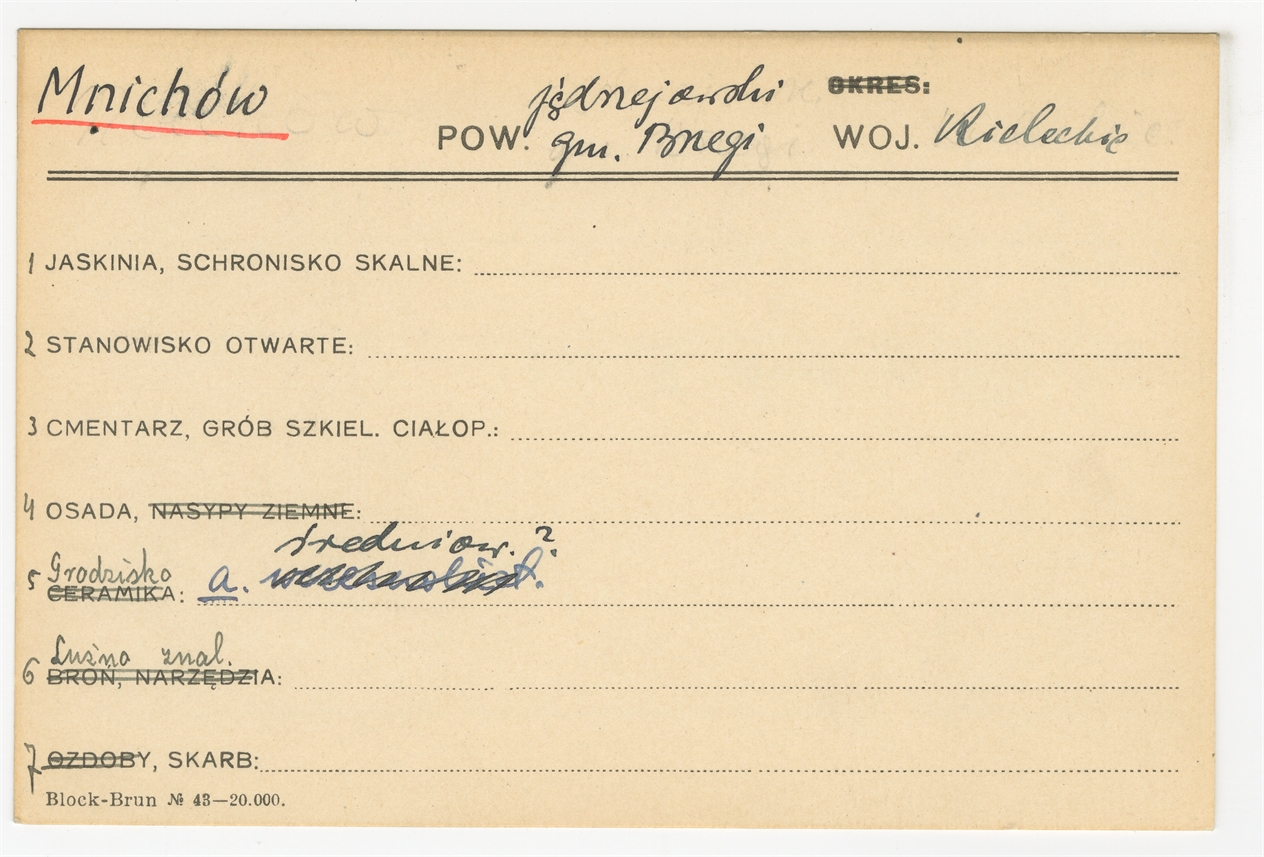 Mnichów
jędrzejowski OKRES:
POW. gm. Brzegi WOJ. Kieleckie
1 JASKINIA, SCHRONISKO SKALNE:
2 STANOWISKO OTWARTE:
3 CMENTARZ, GRÓB SZKIEL. CIAŁOP.:
4 OSADA, NASYPY ZIEMNE:
średniow. ?
Grodzisko
5 CERAMIKA: a.
Luźno znal.
6 BROŃ, NARZĘDZIA:
7 OZDOBY, SKARB:
Block-Brun № 43—20.000.